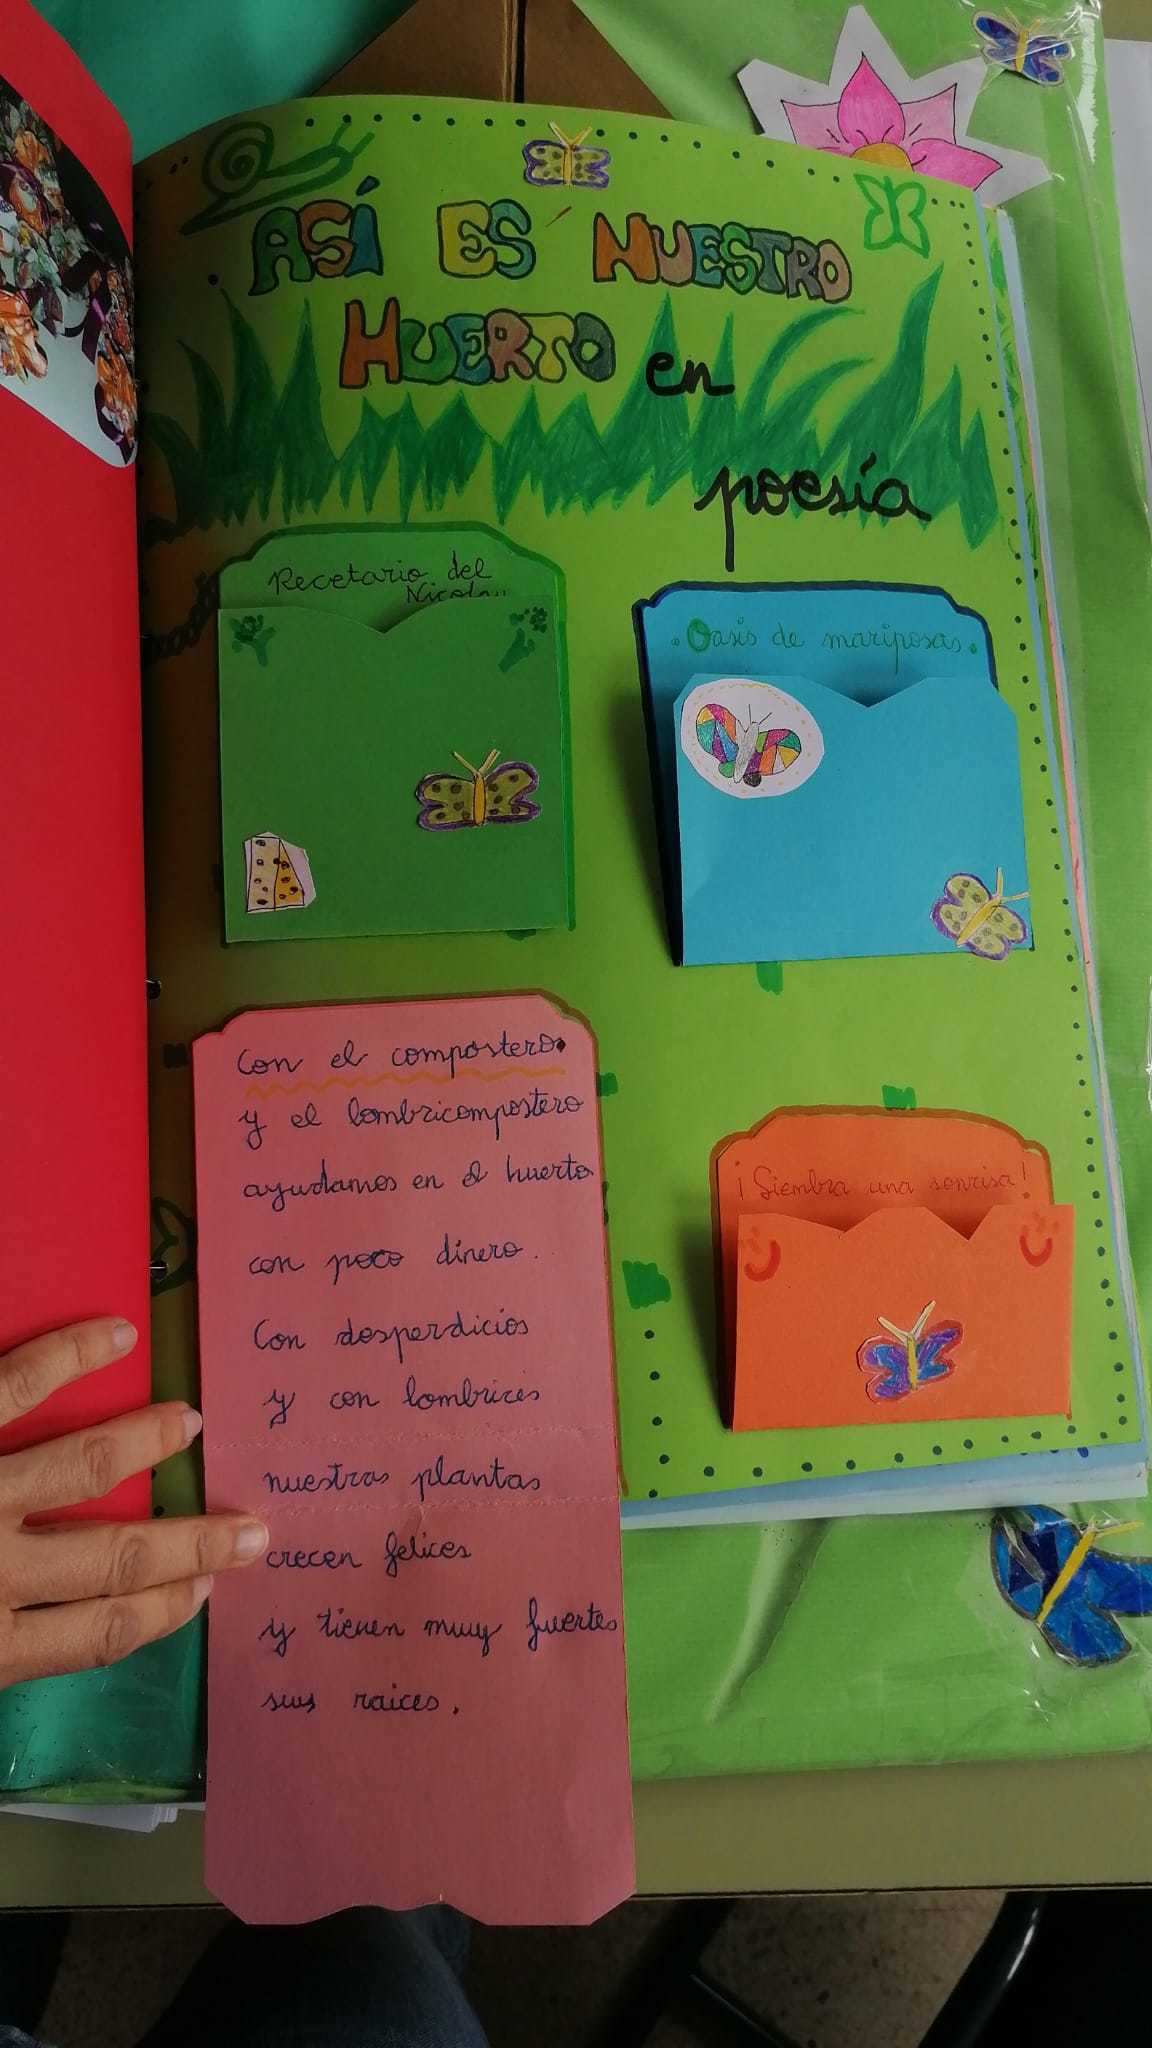 ASÍ ES NUESTRO
HUERTO en
poesía
Recetario del
. Oasis de mariposas.
Con el compostero
y el lombricompostero
ayudamos en el huerto
con poco dinero.
Con desperdicios
y con lombrices
nuestras plantas
crecen felices
y tienen muy fuertes
sus raices.
¡Siembra una sonrisa!